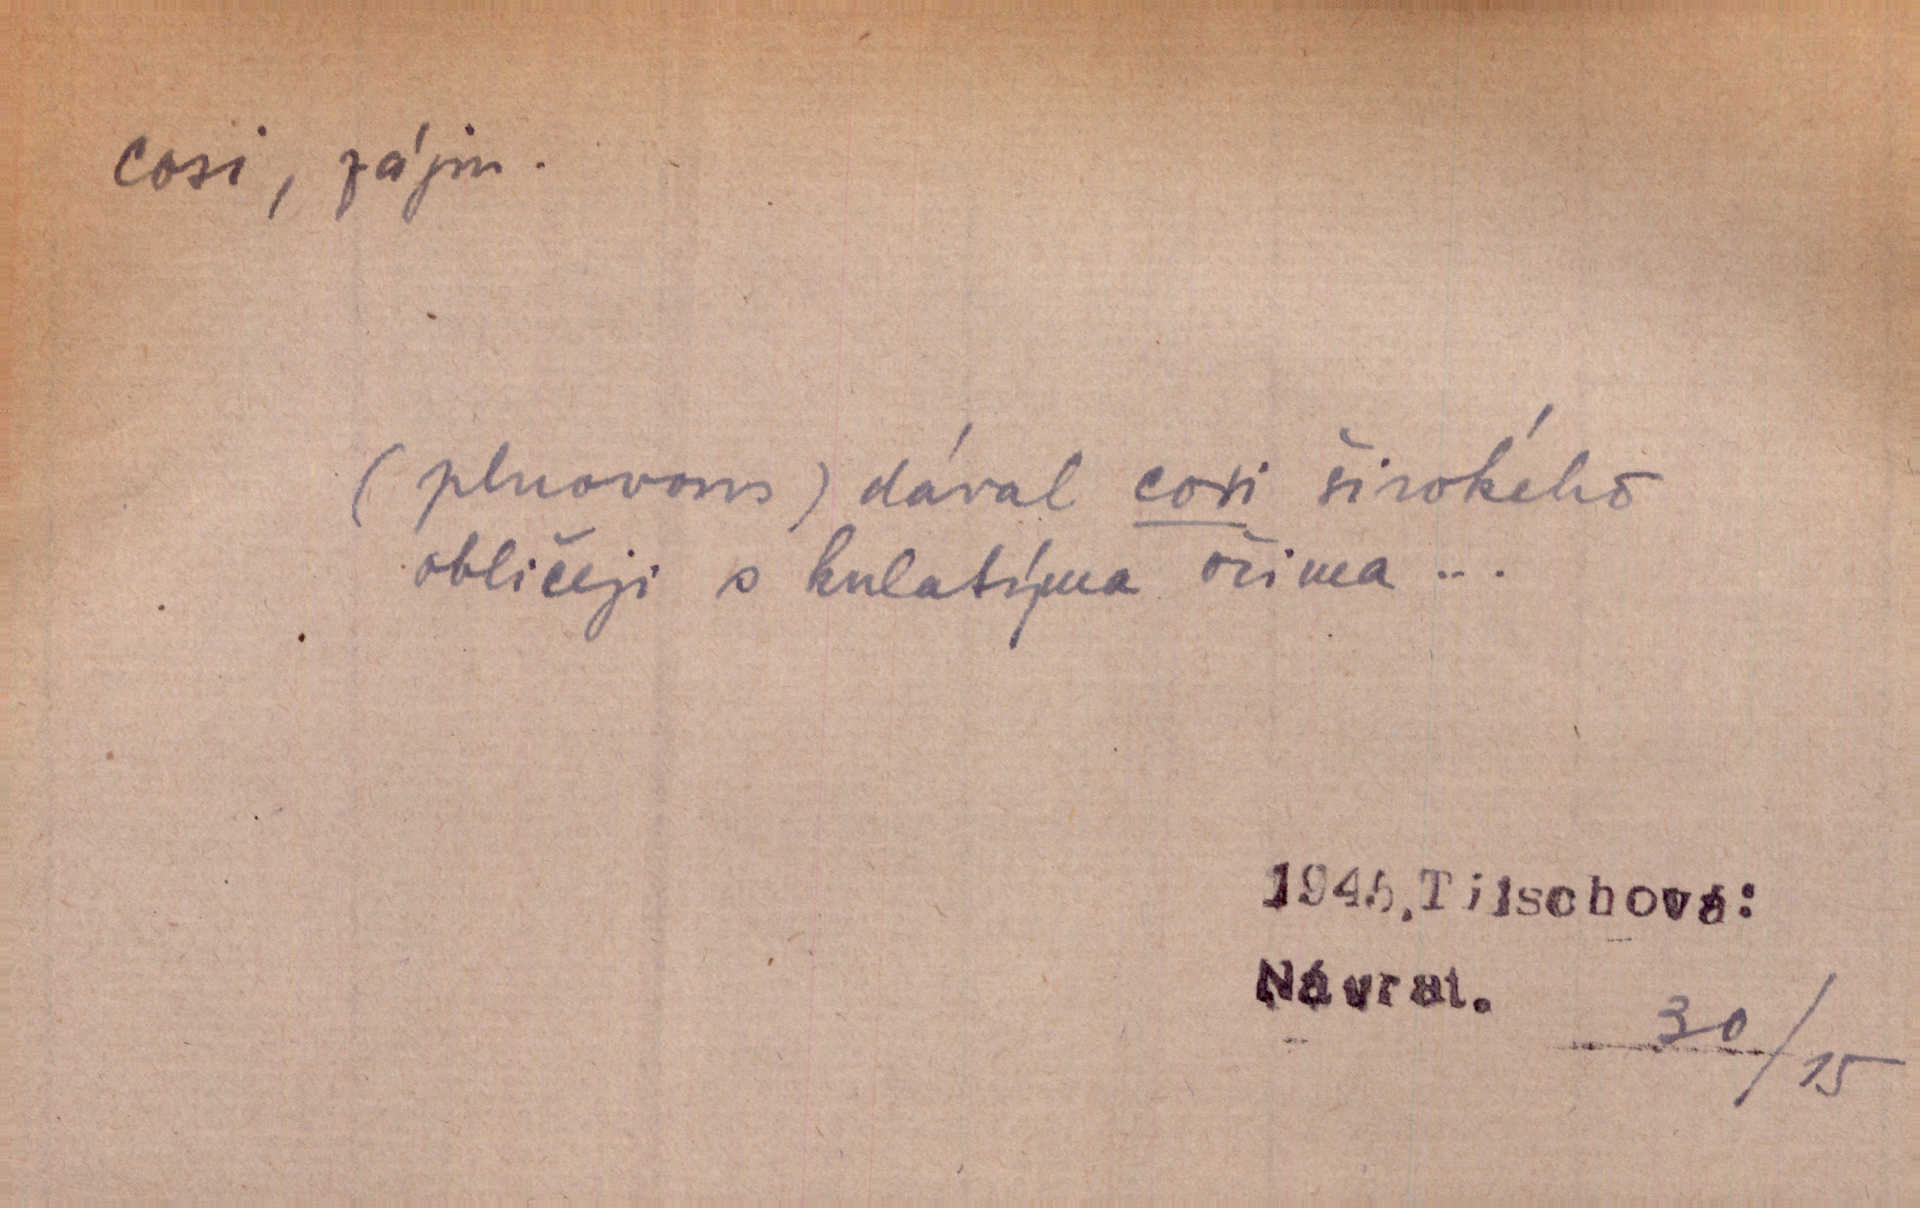 cosi, zájm.
(plnovous) dával cosi širokého
obličeji s kulatýma očima ...
1945, Tilschová:
Návrat.
30/15